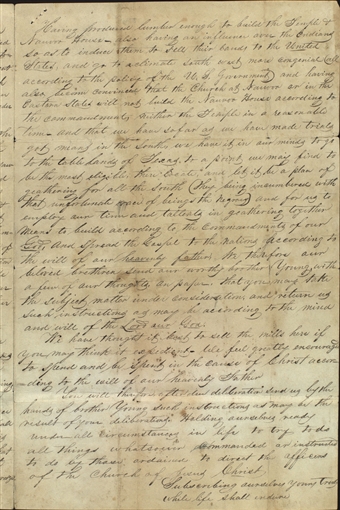 Having produced lumber enough to build the Temple &
Nauvoo House—also having an influence over the Indians
so as to induce them to sell their lands to the United
States, and go to a climate south west, more congenial (all
according to the policy of the U.S. Government) and having
also become convinced that the Church at Nauvoo or in the
Eastern States will not build the Nauvoo House according to
the commandment, neither the Temple in a reasonable
time— and that we have so far as we have made trials
got means in the South, we have it in our minds to go
to the table lands of Texas, to a point we may find to
be the most eligible, there locate, and let it be a place of
gathering for all the South (they being incumbered with
that unfortunate race of beings the negroes) and for us to
employ our time and talents in gathering together
means to build according to the commandments of our
God, and spread the Gospel to the nations according to
the will of our heavenly father. We therefore our
beloved brethren send our worthy brother Young with
a few of our thoughts, on paper that you may take
the subject matter under consideration and return us
such instructions as may be according to the mind
and will of the Lord our God.
We have thought it best to sell the mills here if
you may think it expedient. We feel greatly encouraged
to spend and be spent in the cause of Christ accor-
ding to the will of our heavenly Father
You will therefore after due deliberation send us by the
hands of brother Young such instructions as may be the
result of your deliberations. Holding ourselves ready
under all circumstances in life to try to do
all things whatsoever commanded or instructed
to do by those ordained to direct the officers
of the Church of Jesus Christ.
Subscribing ourselves yours truly
while life shall endure